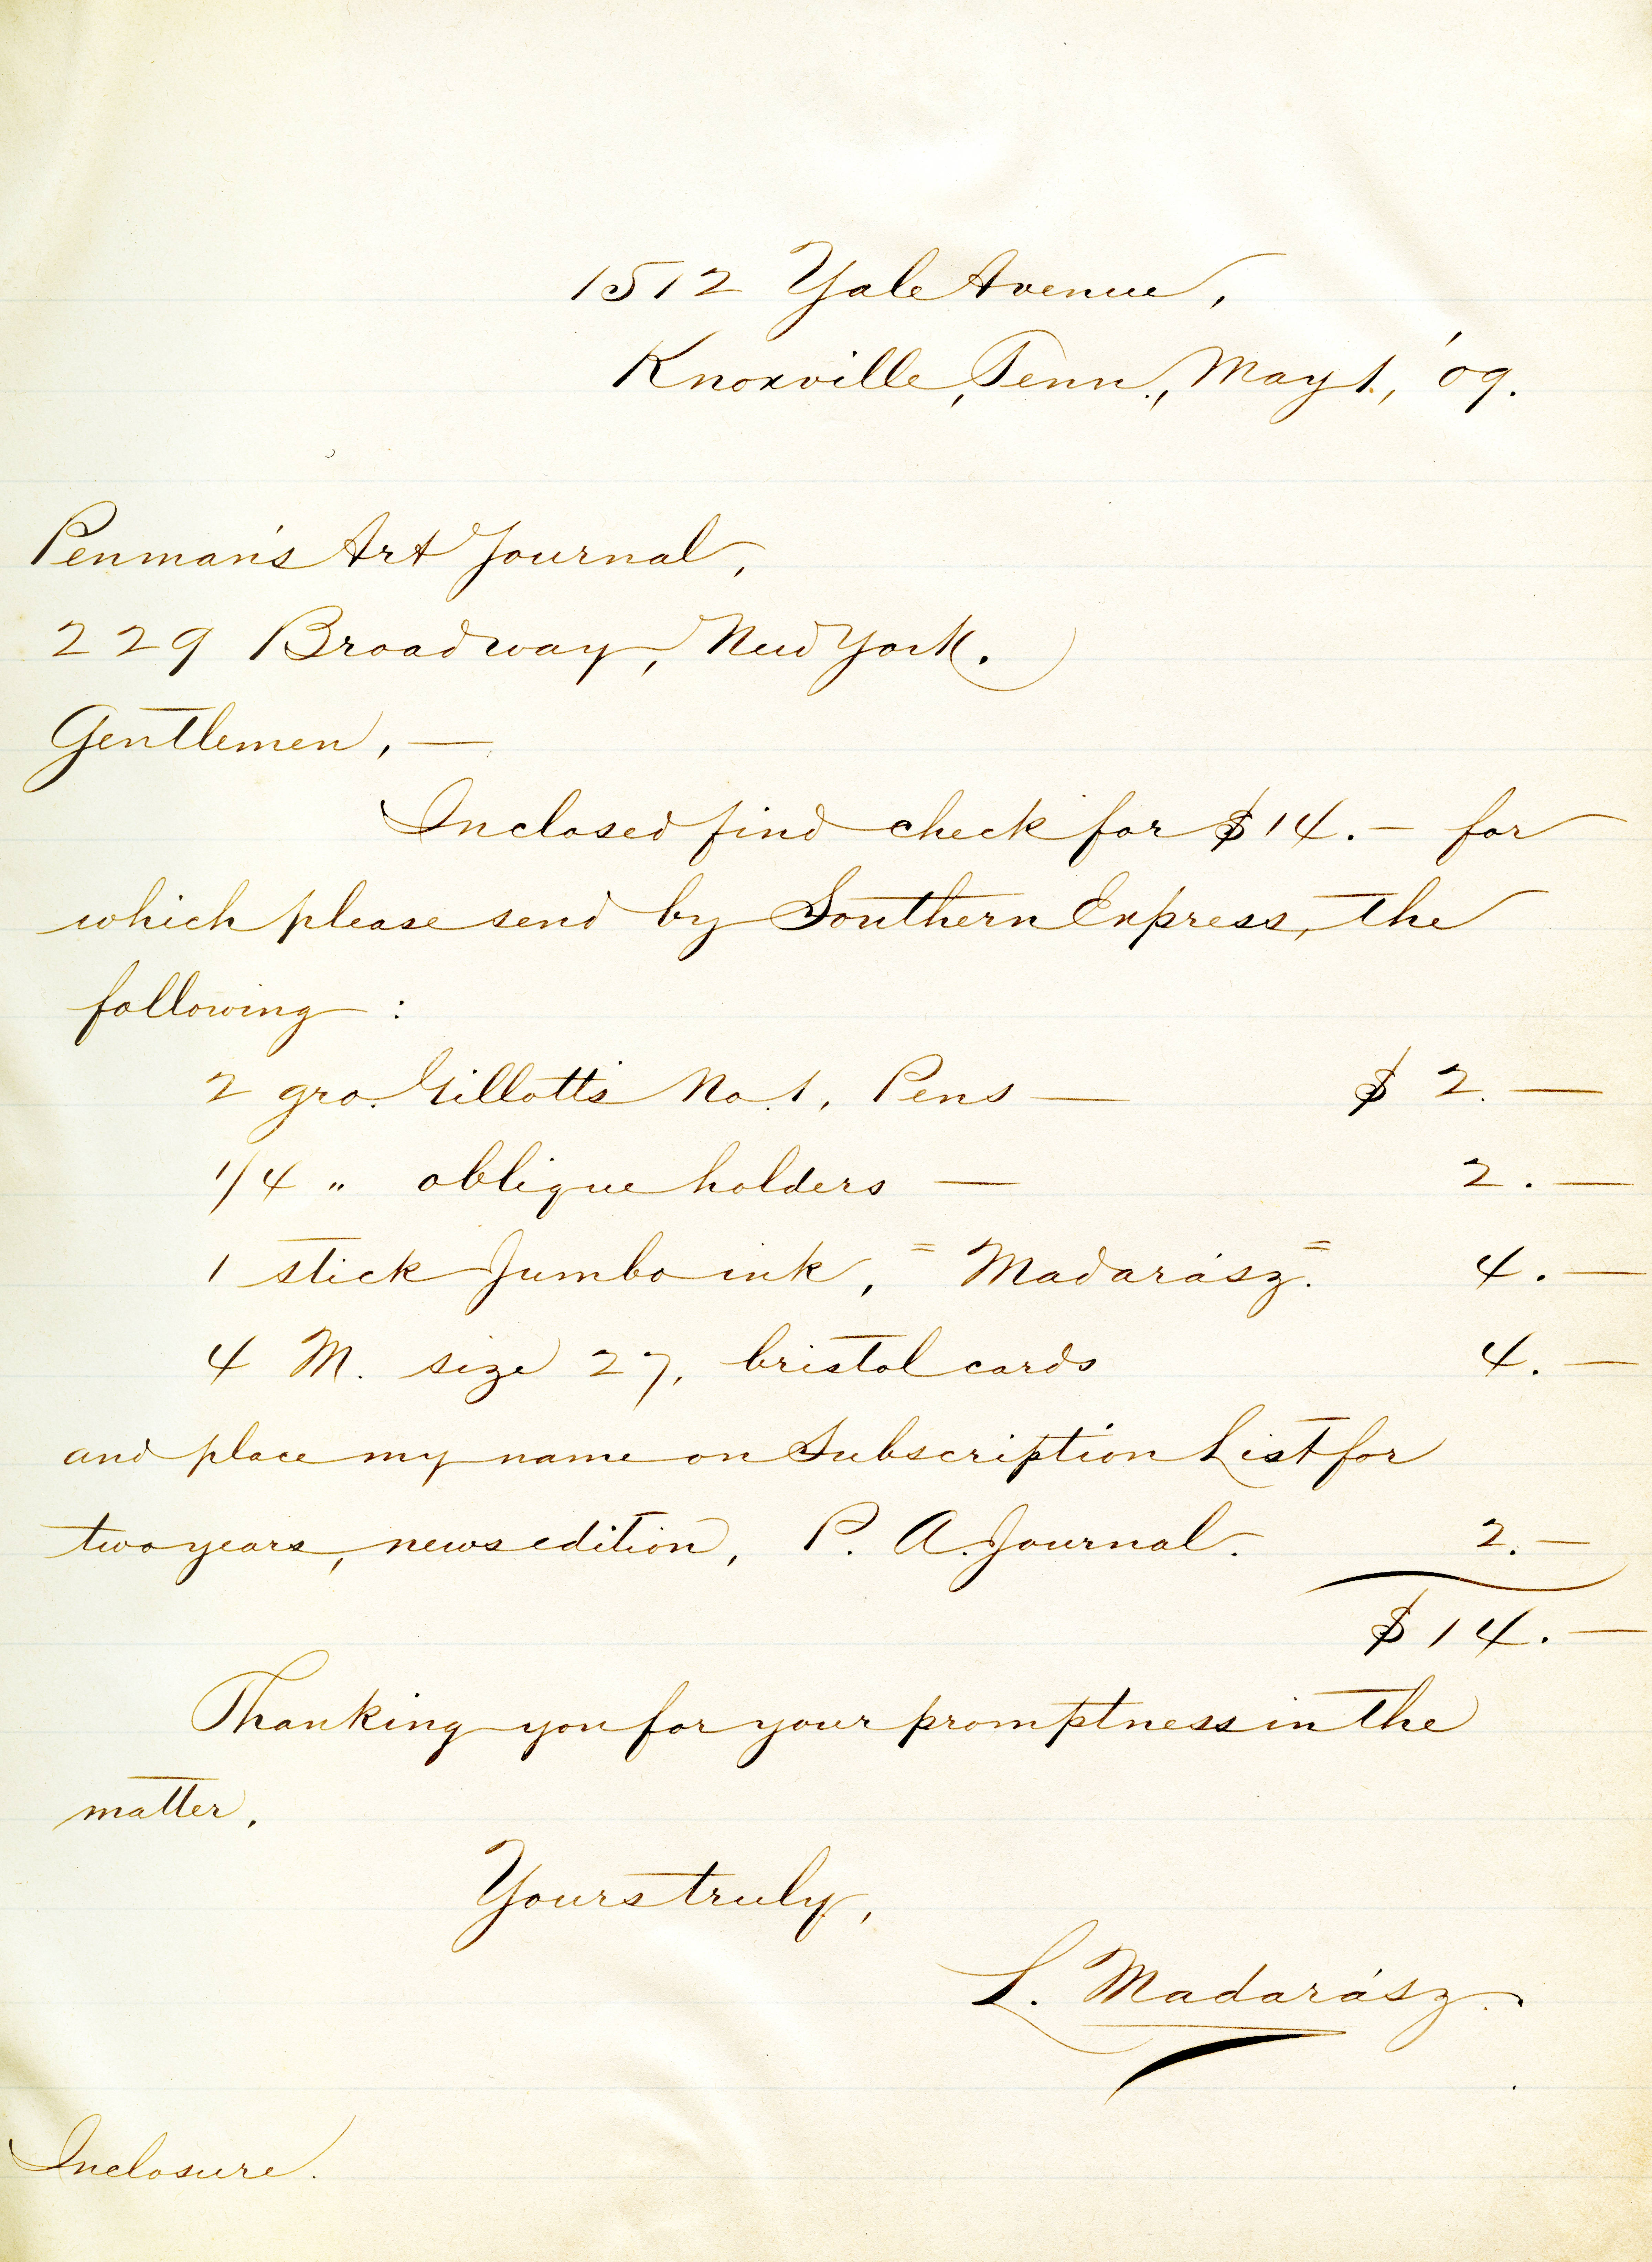 1512 Yale Avenue,
Knoxville, Tenn., May 1., '09.
Penman's Art Journal,
229 Broadway, New York.
Gentlemen, —
Inclosed find check for $14.— for
which please send by Southern Express, the
following :
2 gro. Gillott's No. 1, Pens — $ 2. —
1/4 " oblique holders — 2. —
1 stick Jumbo ink, "Madarász". 4. —
4 M. size 27, bristol cards 4. —
and place my name on Subscription List for
two years, news edition, P. A. Journal. 2. —
$ 14. —
Thanking you for your promptness in the
matter.
Yours truly,
L. Madarász.
Inclosure.